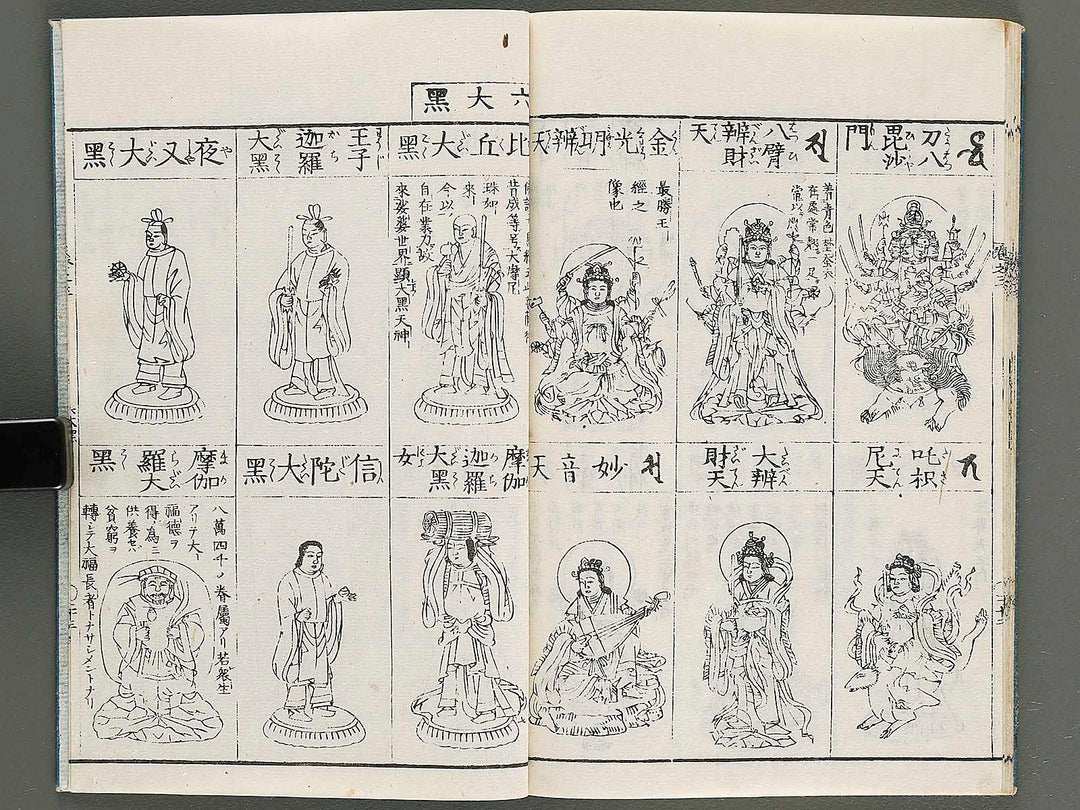 刀八毘沙門
八臂辨財天
金光明辨天
最勝王
經之
像也
吒枳尼天
大辨財天
妙音天
六大黑
比丘大黑
今以
自在業力故
來娑婆世界顯大黑天神
王子迦羅大黑
夜叉大黑
摩伽迦羅大黑女
信陀大黑
摩伽羅大黑
八萬四千ノ眷屬アリ若衆生
アリテ大
福德ヲ
得ン為ニ
供養セハ
貧窮ヲ
轉シテ大福長者トナサシメントナリ